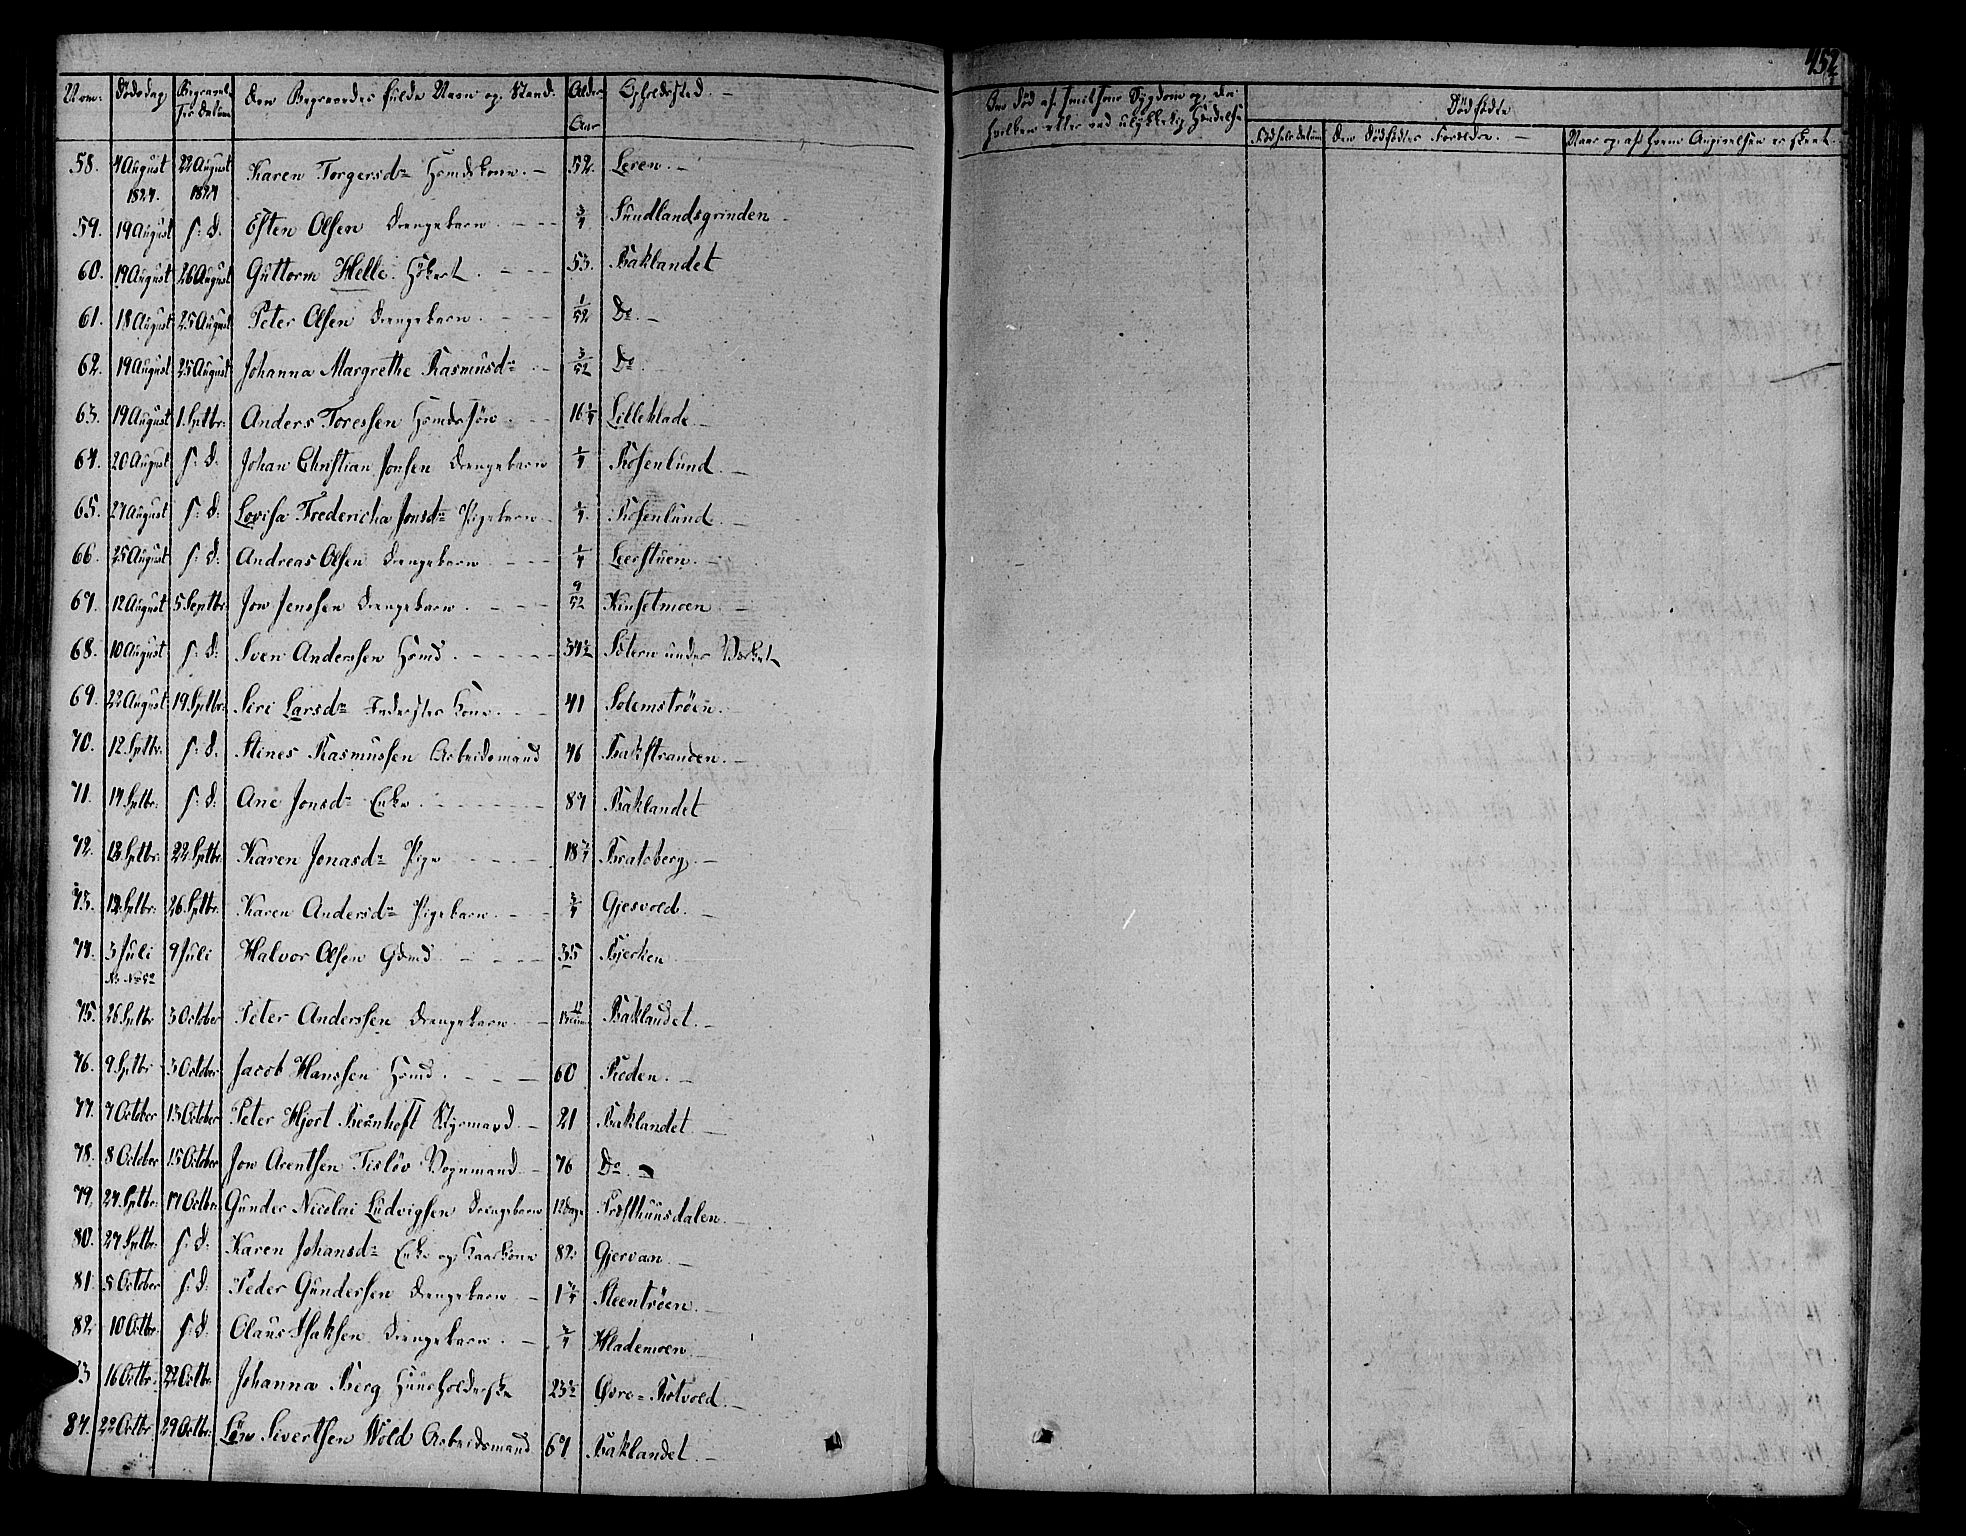 452
Num: Dødsdag Begravelses Datum Den Begravedes fulde Navn og Stand. Alder Aar Opholdssted.
58. 4 August 1824. 22 August 1824 Karen Torgersdr Huusmdskone. 52. Leren.
59. 19 August s: d. Esten Olsen Drengebarn 3/4 Sundlandsgrinden
60. 19 August 26 August Guttorm Helle. Høkert. 53. Baklandet
61. 18 August 25 August Peter Olsen Drengebarn 1/52 Do.
62. 19 August 25 August Johanna Margrethe Rasmusdr 3/52 Do.
63. 19 August 1. Septbr: Anders Toressen Huusmdssøn 16 1/4 Lilleklade
64. 20 August s: d: Johan Christian Jonsen Drengebarn 1/4 Rosenlund.
65. 24 August s: d: Lovisa Fredericha Jonsdr Pigebarn 1/4. Rosenlund.
66. 25 August s: d: Andreas Olsen Drengebarn 1/4 Leerstuen.
67. 12 August 5 Septbr: Jon Jenssen Drengebarn 9/52 Kinsetmoen
68. 10 August s: d: Sven Anderssen Husmd 34 1/2 Sætern under Værket
69. 22 August 19 Septbr: Siri Larsdr Inderster Kone 41 Solemstrøen
70. 12. Septbr. s: d. Stines Rasmussen Arbeidsmand 46 Bakstranden.
71. 14 Septbr. s: d: Ane Jonsdr Enke 87 Baklandet
72. 13 Septbr. 22 Septbr. Karen Jonasdr Pige 18 3/4 Bratsberg.
73. 12 Septbr. 26 Septbr. Karen Andersdr Pigebarn 3/4 Gjesvold.
74. 3 Juli 9 Juli Halvor Olsen Gdmd 35 Bjerken
No 52
75. 26 Septbr 3 October Peter Anderssen Drengebarn Baklandet.
76. 9 Septbr 3 October Jacob Hanssen Husmd. 60 Roden.
77. 7 October 13 October Peter Hjort Bernhoft Styrmand 21 Baklandet.
78. 8 October 15 October Jon Arentsen Tisløv Vognmand 76 Do.
79. 24 Septbr: 17 Octbr: Gunder Nicolai Ludvigsen Drengebarn 12 Dage Frosthuusdalen
80. 27 Septbr. s: d: Karen Johansdr Enke og Kaarkone 82 Gjervan.
81. 5 October s: d. Peder Gundersen Drengebarn 1 1/4 Steentrøen.
82. 10 Octbr. s: d. Olaus Isaksen Drengebarn 3/4 Hlademoen
3 16 Octbr. 22 Octbr. Johanna Berg Huusholderske 23 1/2 Øvre-Rotvold.
84. 22 Octbr. 29 Octbr. Siverthsen Wold Arbeidsmand 67 Baklandet.
Om Død af Smitsom Sygdom og da hvilken eller ved ulykkelig Hændelse
Dødfødte
Fødsels datum Den Dødfødtes Forældre. Naar og af hvem Angivelsen er skeet.